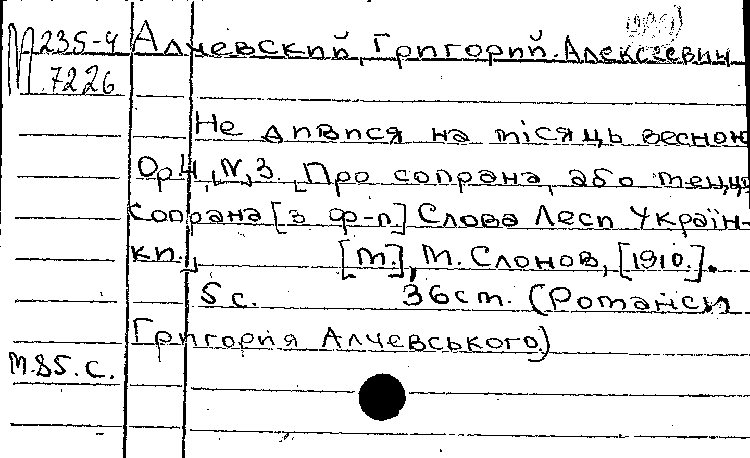 М 235-4
7226
Алчевский, Григорий Алексеевич
Не дивися на місяць весною
Ор.4, N.3. Про сопрана, або меццо
сопрана [з ф-п.] Слова Леси Україн-
ки. [М.], М. Слонов, [1910.].
5 с. 36ст. (Романси
Григорія Алчевського.)
М.85.С.